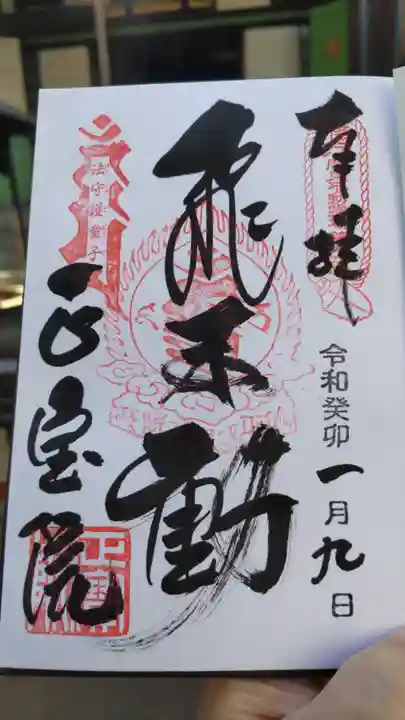 奉拝
令和癸卯一月九日
飛不動
法守護童子
正宝院